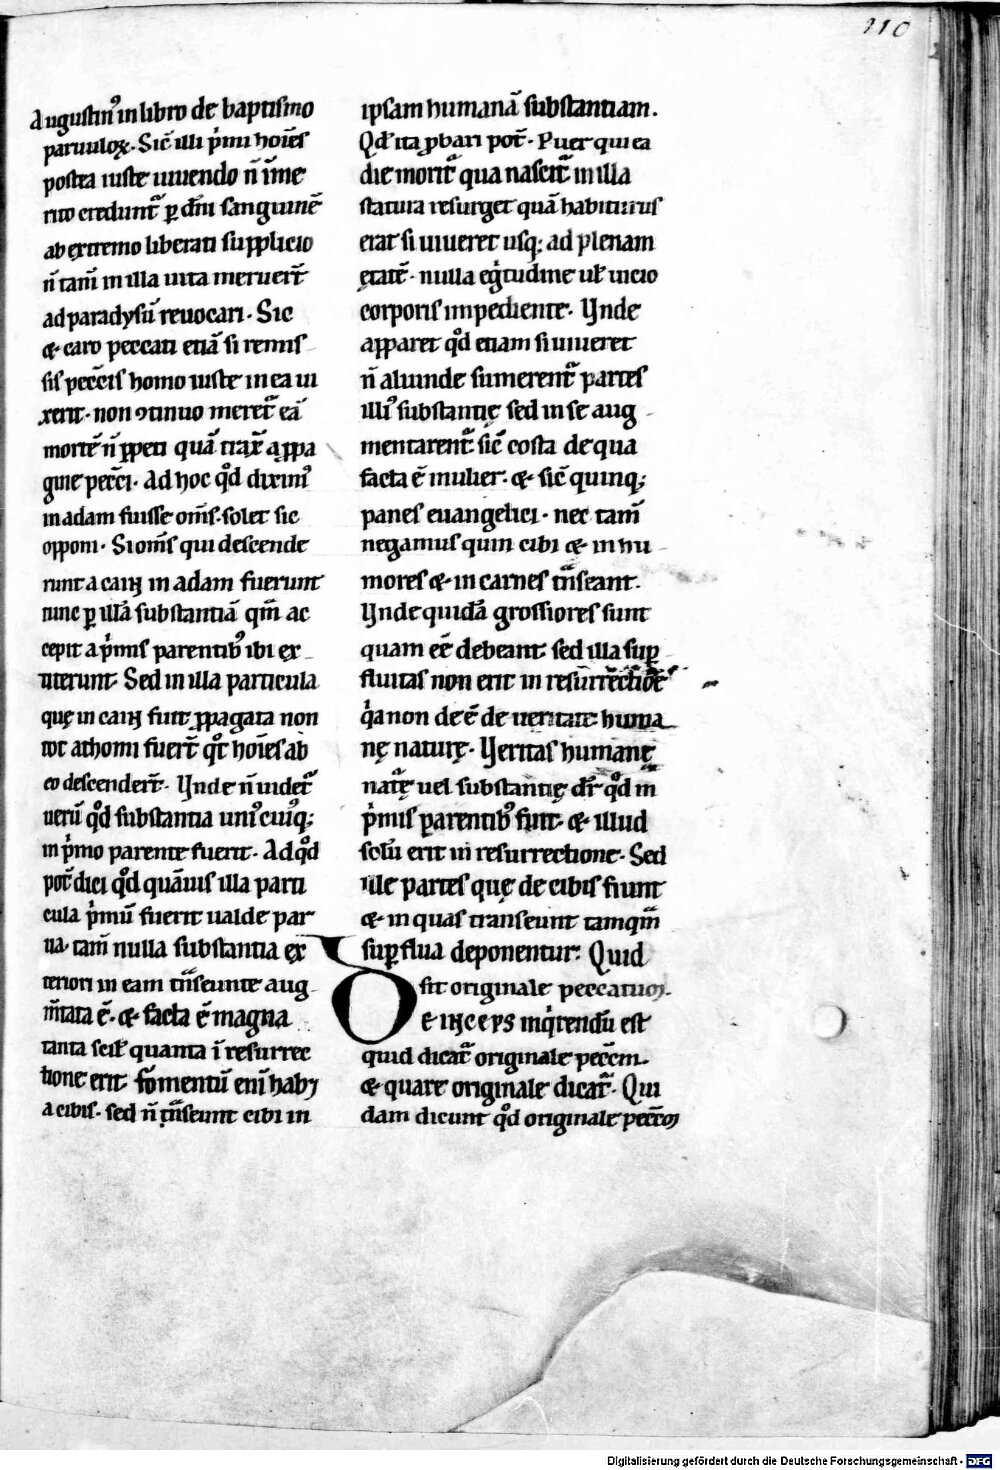 110
Augustin᷒ in libro de baptismo
paruuloꝝ. Sic̄ illi p̍mi hoīes
postea iuste uiuendo n̄ īme
rito credunt᷑ ꝑ dn̄i sanguinē
ab extremo liberati supplicio
n̄ tam̄ in illa uita meruer̄t
ad paradysū reuocari. Sic
⁊ caro peccati etiā si remis
sis pecc̄is homo iuste in ea ui
xerit. non ꝯtinuo meret᷑ eā
mortē n̄ ꝑpeti quā trax̄ a ꝓpa
gine pecc̄i. Ad hoc qͦd dixim᷒
in adam fuisse om̄s. solet sic
opponi. Si om̄s qui descende
runt a carn̄ in adam fuerunt
tunc ꝑ illā substantiā qm̄ ac
cepit a p̍mis parentib᷒ ibi ex
titerunt. Sed in illa particula
quę in carn̄ fuit ꝓpagata non
tot athomi fuer̄t qͦt hoīes ab
eo descender̄t. Vnde n̄ uidet᷑
uerū qͦd substantia uni᷒cui᷒qꝫ
in p̍mo parente fuerit. Ad qͦd
pot̄ dici qͦd quāuis illa parti
cula p̍mū fuerit ualde par
ua. tam̄ nulla substantia ex
teriori in eam tn̄seunte aug
m̄tata ē. ⁊ facta ē magna
tanta scil̄ quanta ī resurrec
tione erit. fomentū eni᷒ habꝫ
a cibis. sed n̄ tn̄seunt cibi in
ipsam humanā substantiam.
Qd̄ ita ꝓbari pot̄. Puer qui ea
die morit᷑ qua nascit᷑ in illa
statura resurget quā habiturus
erat si uiueret usqꝫ ad plenam
ętatē. nulla eg̍tudine ul̄ uicio
corporis impediente. Vnde
apparet qͦd etiam si uiueret
n̄ aliunde sumerent᷑ partes
illi᷒ substantię sed in se aug
mentarent᷑. sic̄ costa de qua
facta ē mulier. ⁊ sic̄ quinqꝫ
panes euangelici. nec tam̄
negamus quin cibi ⁊ in hu
mores ⁊ in carnes tn̄seant.
Vnde quidā grossiores sunt
quam eē debeant. sed illa suꝑ
fluitas non erit in resurrectioē
q̍a non de ē de ueritate huma
nę naturę. Veritas humanę
nat᷑ę uel substantię dr̄ qͦd in
p̍mis parentib᷒ fuit. ⁊ illud
solū erit in resurrectione. Sed
ille partes quę de cibis fiunt
⁊ in quas transeunt tamqm̄
suꝑflua deponentur. Quid
sit originale peccatum.
DEINCEPS inq̍rendū est
quid dicat᷑ originale pecc̄m.
⁊ quare originale dicat᷑. Qui
dam dicunt qͦd originale pecc̄m
Digitalisierung gefördert durch die Deutsche Forschungsgemeinschaft - DFG